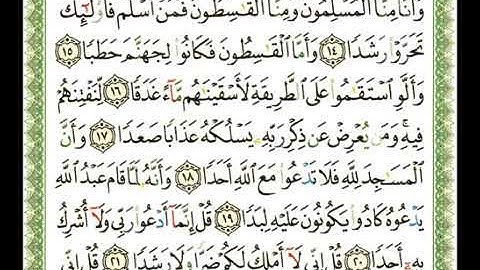 وَأَنَّا مِنَّا الْمُسْلِمُونَ وَمِنَّا الْقَاسِطُونَ فَمَنْ أَسْلَمَ فَأُولَٰئِكَ
تَحَرَّوْا رَشَدًا ﴿١٤﴾ وَأَمَّا الْقَاسِطُونَ فَكَانُوا لِجَهَنَّمَ حَطَبًا ﴿١٥﴾
وَأَلَّوِ اسْتَقَامُوا عَلَى الطَّرِيقَةِ لَأَسْقَيْنَاهُم مَّاءً غَدَقًا ﴿١٦﴾ لِّنَفْتِنَهُمْ
فِيهِ ۚ وَمَن يُعْرِضْ عَن ذِكْرِ رَبِّهِ يَسْلُكْهُ عَذَابًا صَعَدًا ﴿١٧﴾ وَأَنَّ
الْمَسَاجِدَ لِلَّهِ فَلَا تَدْعُوا مَعَ اللَّهِ أَحَدًا ﴿١٨﴾ وَأَنَّهُ لَمَّا قَامَ عَبْدُ اللَّهِ
يَدْعُوهُ كَادُوا يَكُونُونَ عَلَيْهِ لِبَدًا ﴿١٩﴾ قُلْ إِنَّمَا أَدْعُو رَبِّي وَلَا أُشْرِكُ
بِهِ أَحَدًا ﴿٢٠﴾ قُلْ إِنِّي لَا أَمْلِكُ لَكُمْ ضَرًّا وَلَا رَشَدًا ﴿٢١﴾ قُلْ إِنِّي